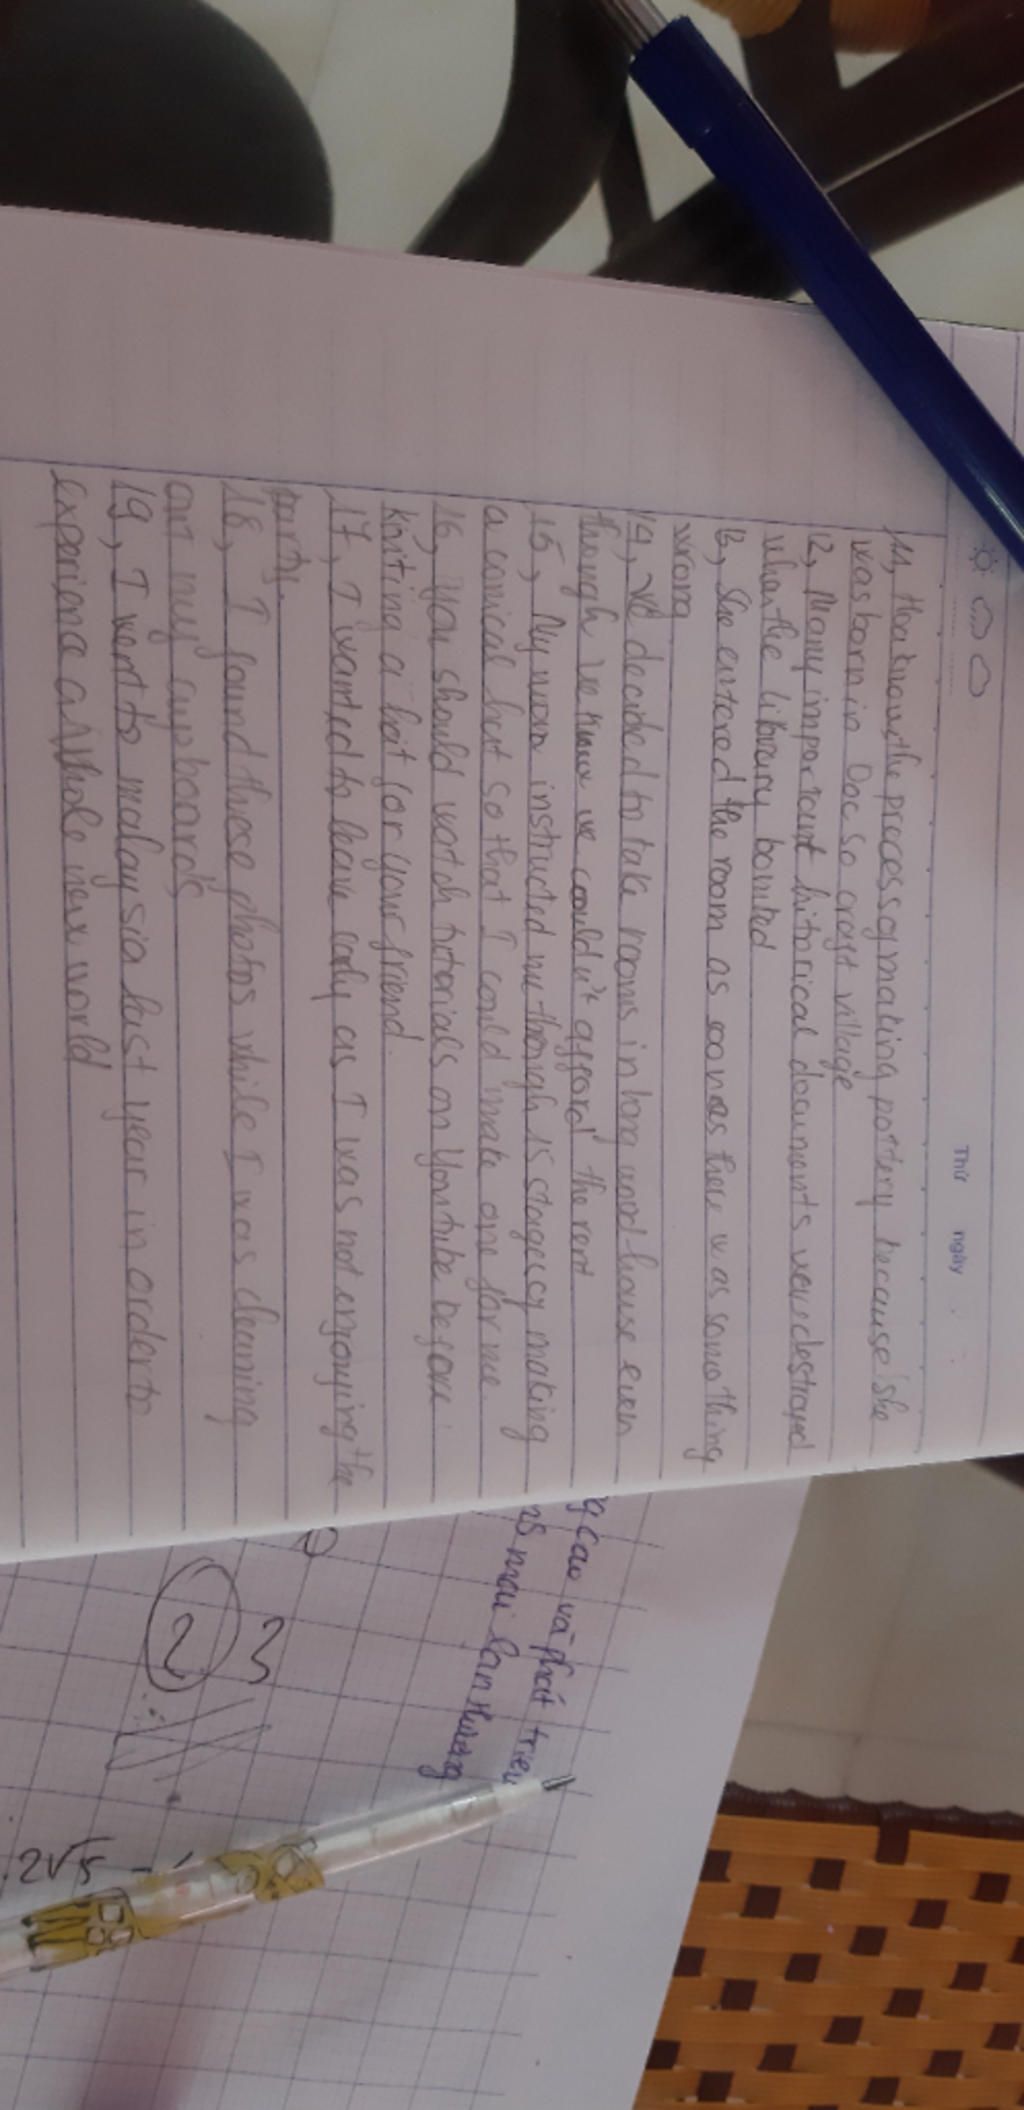 Thứ ngày
11, Hoa knows the process of making pottery because she
was born in Doc So craft village
12, Many important hitorical documents were destroyed
when the library bombed
13, She entered the room as soon as there was something
wrong
14, We decided to take rooms in long wood house even
though we knew we couldn't afford the rent
15, My mom instructed me though 15 stages cy making
a conical hat so that I could make one for me.
16, you should watch tutorials on Youtube before
knitting a hat for your friend.
17, I wanted to leave early as I was not enjoying the
party.
18, I found these photos while I was cleaning
art my cupboards
19, I went to malaysia last year in order to
experience a Whole new world
g cao và phát triển
ns mai lan hương
2 3
2√5 -